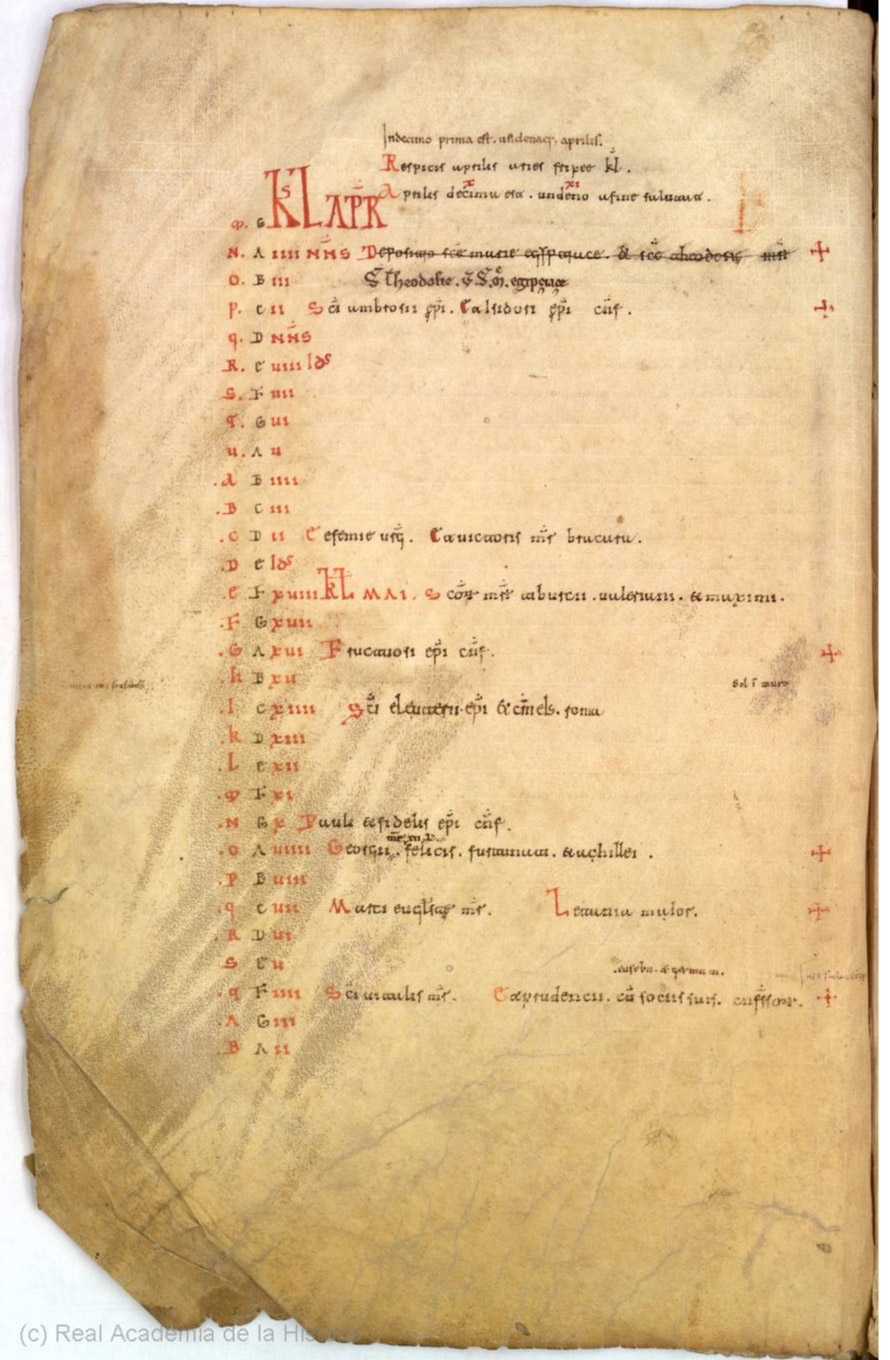 Indecimo prima est. undenaq; aprilis.
Respicis apriles aries frixee kł.
Apriles decimu est. undeno a fine salutat.
x xi
ꝳ. G KL APR
N. A IIII NÑS Depositio sce marie egiptiace. & sce theodosie mr̄
O. B III S Theodosie. egiptiace
P. C II Sc̄i ambrosii ep̄i. Calsidori ep̄i cn̄f.
q. D NÑS
R. E UIII Ids
S. F UII
T. G UI
U. A U
.A B IIII
.B C III
.C D II Eufemie uirg̃. Cauicatoris mr̄ bracara.
.D E Ids
.E F XUIII KL MAI. Scōr mr̄ tiburcii. ualeriani. & maximi.
.F G XUII
.G A XUI Frucatosi ep̄i cn̄f.
.h B XU Sol ī tauro
.I C XIIII Sc̄i eleuterii ep̄i roma
.k D XIII
.L E XII
.ꝳ F XI
.N G X Paule & fidelis ep̄i cn̄f.
.O A UIIII Georgii. felicis. furtunati. & achillei.
.P B UIII
.q C UII Marci euglīste mr̄. Letania maior.
.R D UI
S E U .eusebii. & germani.
.T F IIII Sc̄i uitalis mr̄. & prudencii. cū sociis suis. cnf̄sor.
.A G III
.B A II
(c) Real Academia de la His